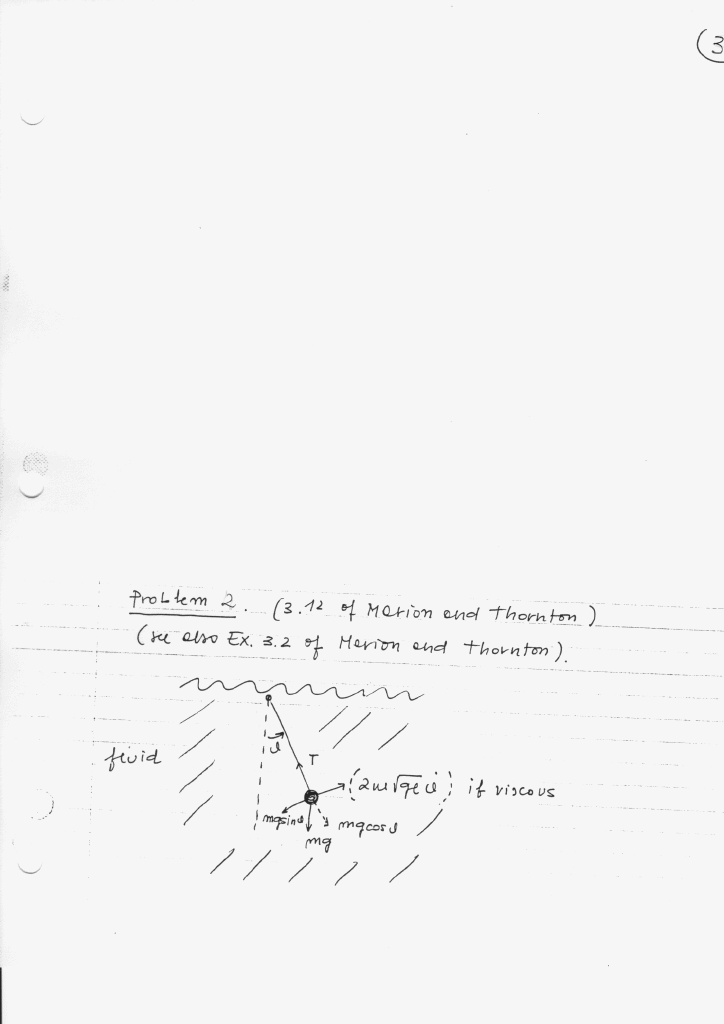 3
Problem 2. (3.12 of Marion and Thornton)
(see also Ex. 3.2 of Marion and Thornton).
fluid
θ
T
(2m√gℓ θ̇) if viscous
mgsinθ
mgcosθ
mg